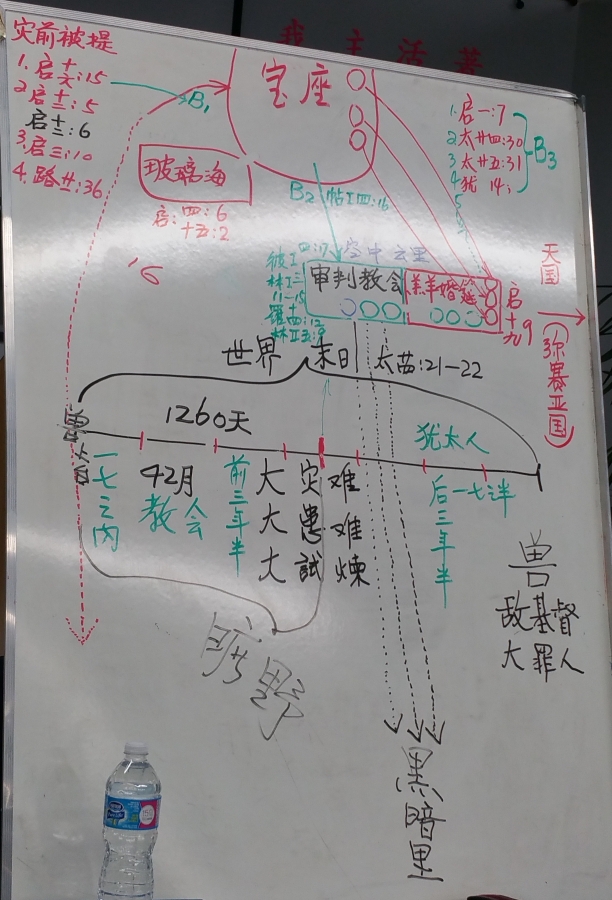 我主活著
灾前被提
1. 启十六:15
2. 启十三:5
启十三:6
3. 启三:10
4. 路廿一:36
B1
宝座
玻璃海
启:四:6
十五:2
B2
帖I四:16
1. 启一:7
2. 太廿四:30
3. 太廿五:31
4. 犹 14
5
B3
空中云里
审判教会
羔羊婚筵
启十九9
天国
(弥赛亚国)
世界末日
太廿四:21-22
1260天
一七之内
42月
教会
前三年半
大灾难
大患难
大試煉
犹太人
后三年半
一七之半
旷野
兽
敌基督
大罪人
黑暗里